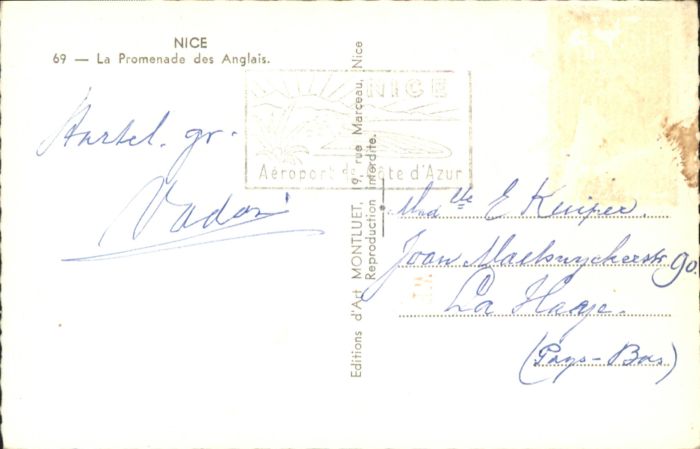 NICE
69 — La Promenade des Anglais.
NICE
Aéroport de Côte d'Azur
Hartel. gr.
Editions d'Art MONTLUET, 19, rue Marceau, Nice
Reproduction interdite.
Mad lle E Kuiper.
Joan Maetsuyckerstr 90.
La Haye.
(Pays-Bas)